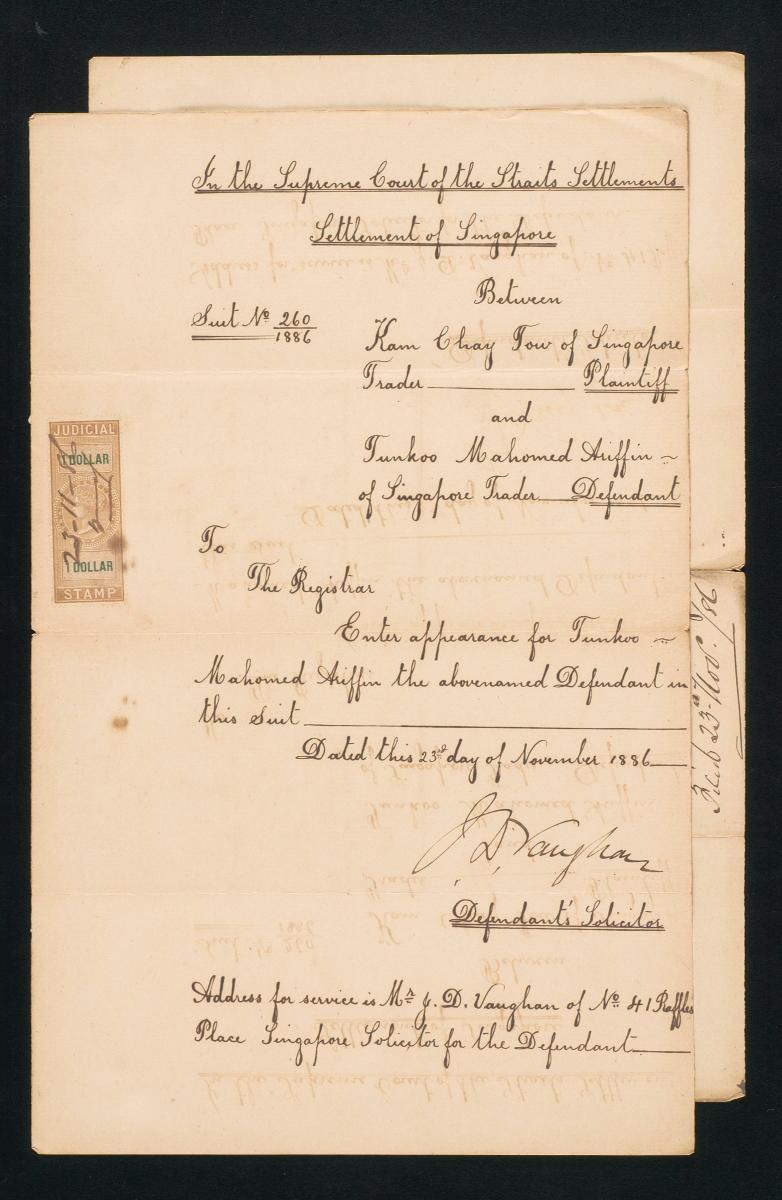 In the Supreme Court of the Straits Settlements
Settlement of Singapore
Between
Suit No 260/1886
Kam Chay Tow of Singapore
Trader Plaintiff
and
Tunkoo Mahomed Ariffin ~
of Singapore Trader Defendant
JUDICIAL
1 DOLLAR
23-11-86
1 DOLLAR
STAMP
To
The Registrar
Enter appearance for Tunkoo ~
Mahomed Ariffin the abovenamed Defendant in
this suit
Dated this 23rd day of November 1886
J. D. Vaughan
Defendant's Solicitor
Address for service is Mr J. D. Vaughan of No 41 Raffles
Place Singapore Solicitor for the Defendant
Filed 23rd Nov. /86